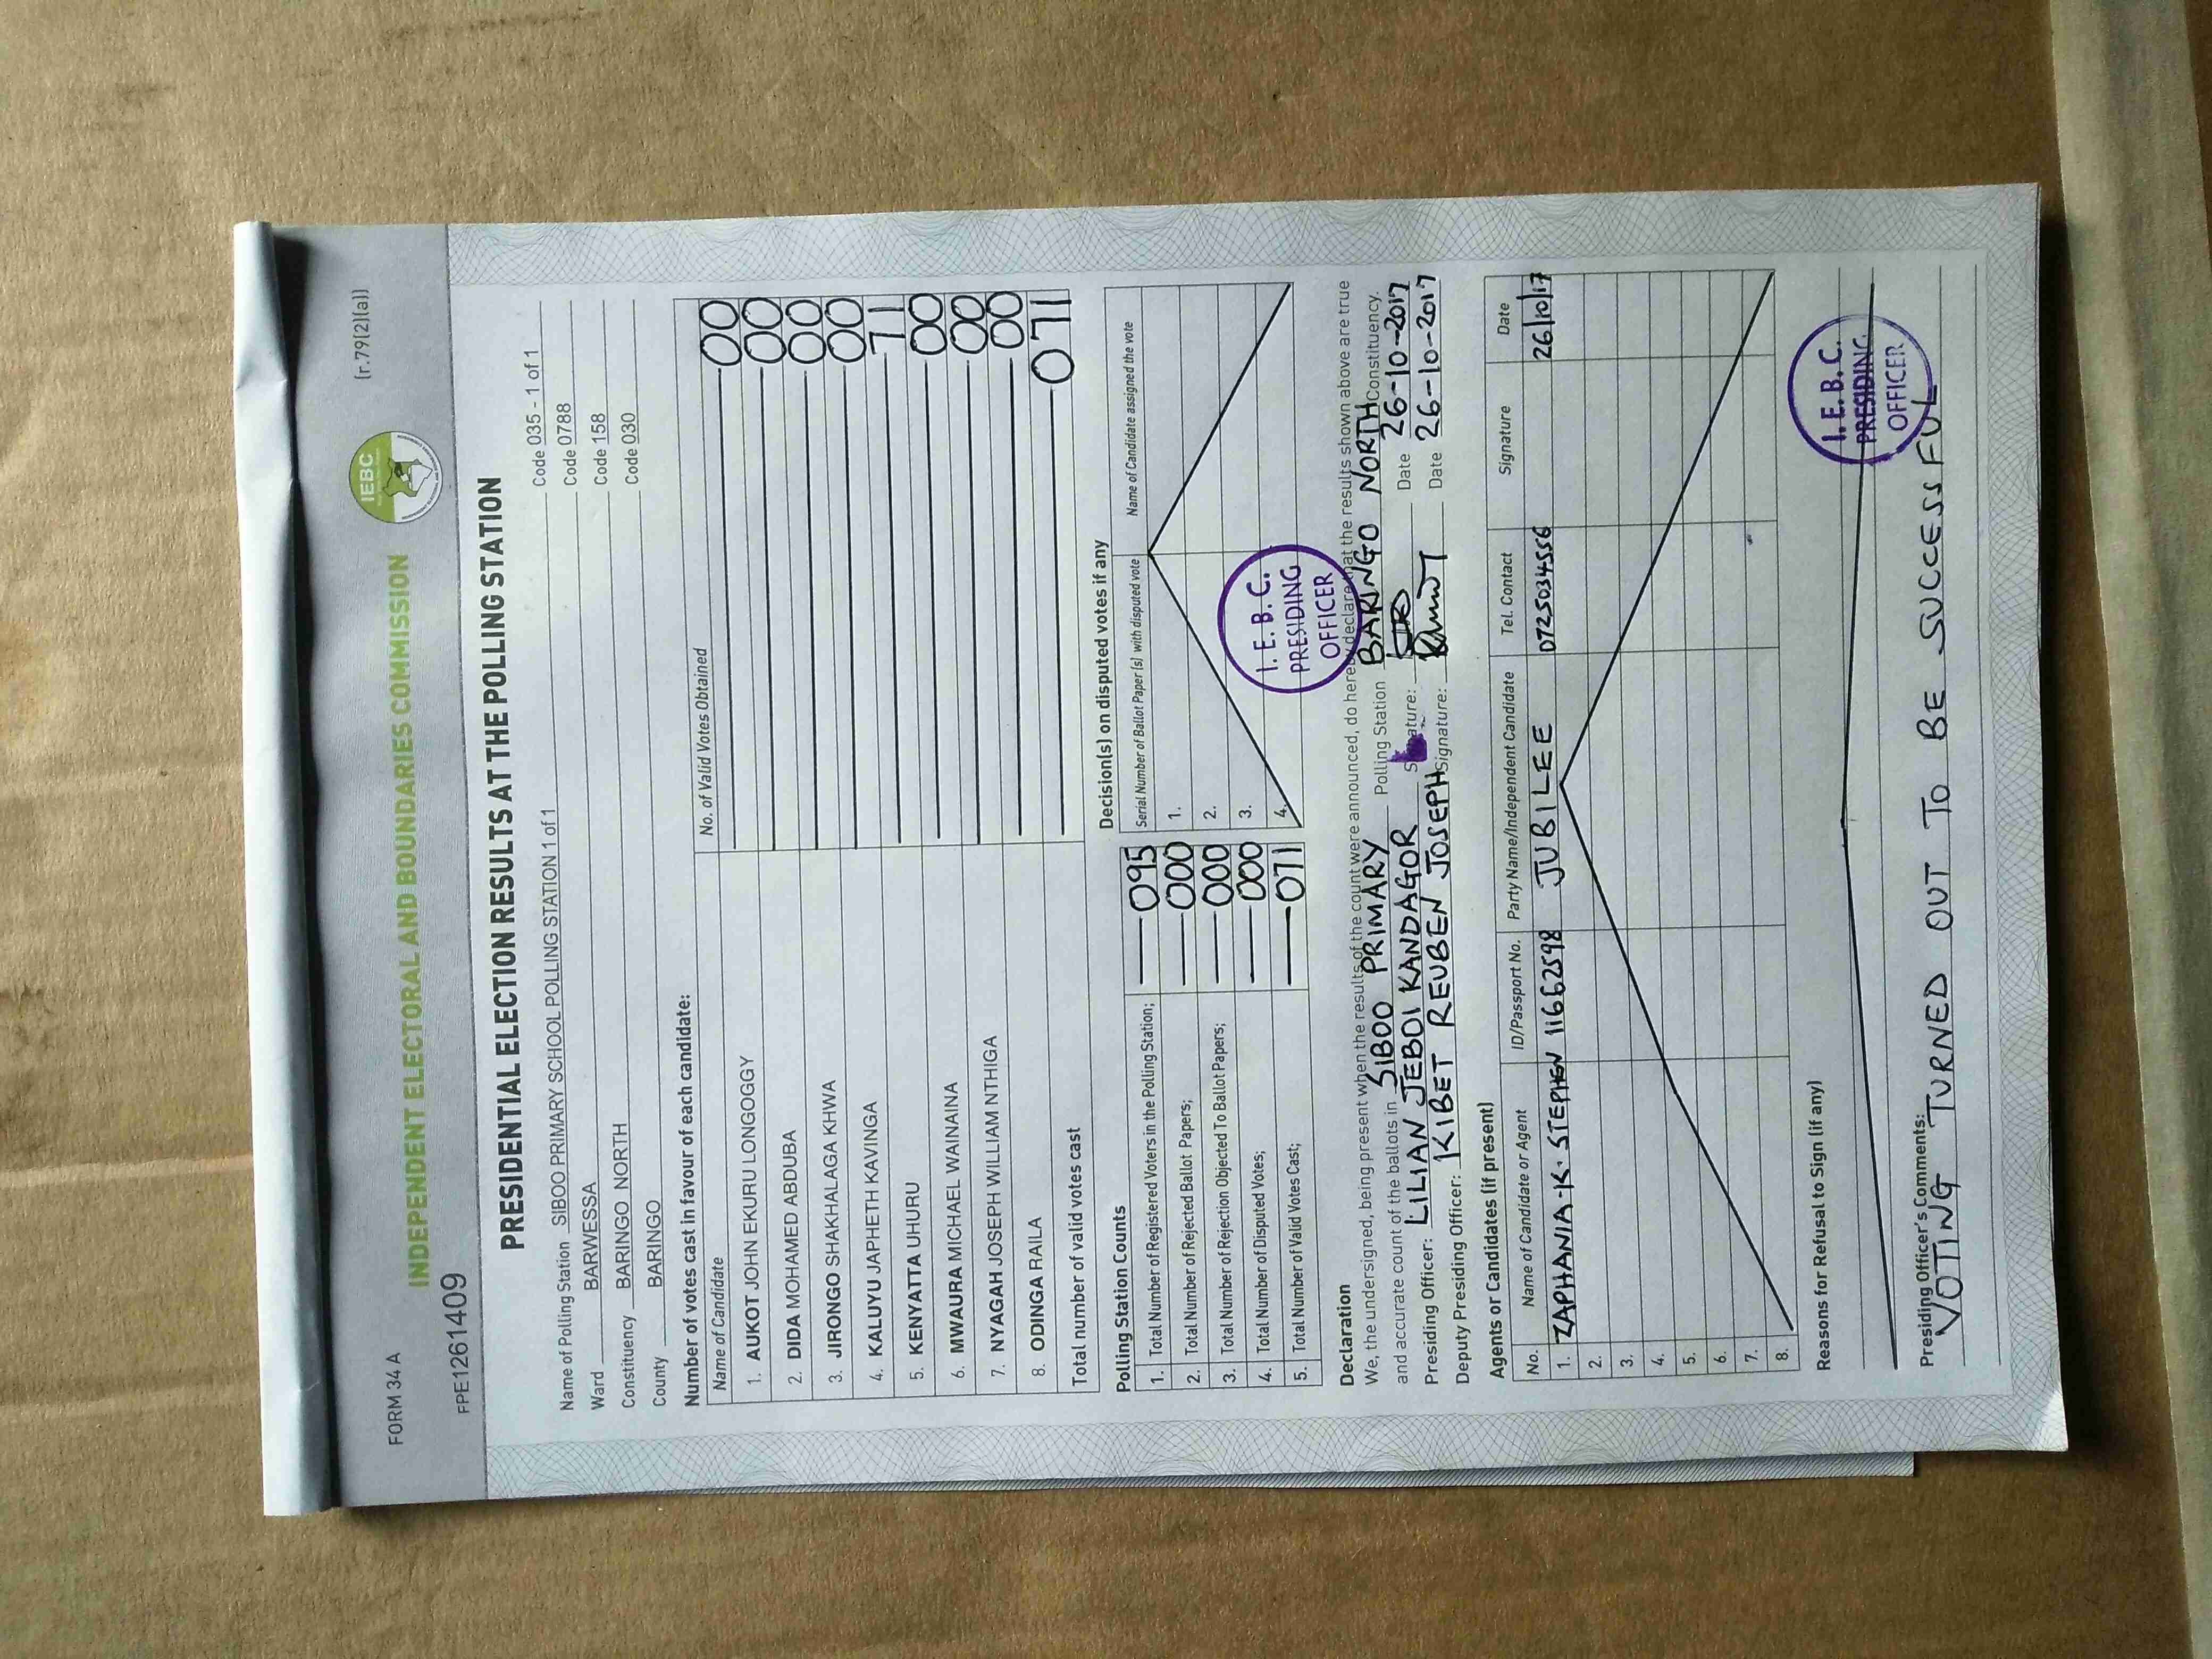 FORM 34 A
(r.79(2)(a))
IEBC
INDEPENDENT ELECTORAL AND BOUNDARIES COMMISSION
FPE1261409
PRESIDENTIAL ELECTION RESULTS AT THE POLLING STATION
Name of Polling Station SIBOO PRIMARY SCHOOL POLLING STATION 1 of 1 Code 035 - 1 of 1
Ward BARWESSA Code 0788
Constituency BARINGO NORTH Code 158
County BARINGO Code 030
Number of votes cast in favour of each candidate:
Name of Candidate No. of Valid Votes Obtained
1. AUKOT JOHN EKURU LONGOGGY 00
2. DIDA MOHAMED ABDUBA 00
3. JIRONGO SHAKHALAGA KHWA 00
4. KALUYU JAPHETH KAVINGA 00
5. KENYATTA UHURU 71
6. MWAURA MICHAEL WAINAINA 00
7. NYAGAH JOSEPH WILLIAM NTHIGA 00
8. ODINGA RAILA 00
Total number of valid votes cast 071
Polling Station Counts
1. Total Number of Registered Voters in the Polling Station; 095
2. Total Number of Rejected Ballot Papers; 000
3. Total Number of Rejection Objected To Ballot Papers; 000
4. Total Number of Disputed Votes; 000
5. Total Number of Valid Votes Cast; 071
Decision(s) on disputed votes if any
Serial Number of Ballot Paper (s) with disputed vote Name of Candidate assigned the vote
1.
2.
3.
4.
I.E.B.C.
PRESIDING
OFFICER
Declaration
We, the undersigned, being present when the results of the count were announced, do hereby declare that the results shown above are true
and accurate count of the ballots in SIBOO PRIMARY Polling Station BARINGO NORTH Constituency.
Presiding Officer: LILIAN JEBOI KANDAGOR Signature: Date 26-10-2017
Deputy Presiding Officer: KIBET REUBEN JOSEPH Signature: Date 26-10-2017
Agents or Candidates (if present)
No. Name of Candidate or Agent ID/Passport No. Party Name/Independent Candidate Tel. Contact Signature Date
1. ZAPHANIA K. STEPHEN 11662598 JUBILEE 0725034556 26/10/17
2.
3.
4.
5.
6.
7.
8.
Reasons for Refusal to Sign (if any)
I.E.B.C.
PRESIDING
OFFICER
Presiding Officer's Comments:
VOTING TURNED OUT TO BE SUCCESSFUL